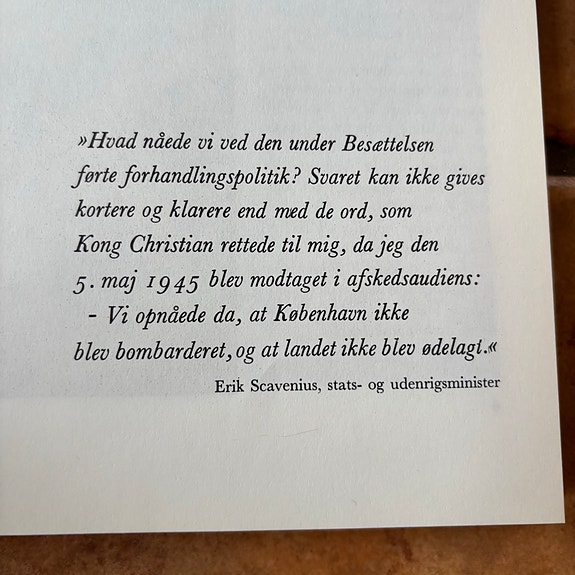 »Hvad nåede vi ved den under Besættelsen
førte forhandlingspolitik? Svaret kan ikke gives
kortere og klarere end med de ord, som
Kong Christian rettede til mig, da jeg den
5. maj 1945 blev modtaget i afskedsaudiens:
- Vi opnåede da, at København ikke
blev bombarderet, og at landet ikke blev ødelagt.«
Erik Scavenius, stats- og udenrigsminister